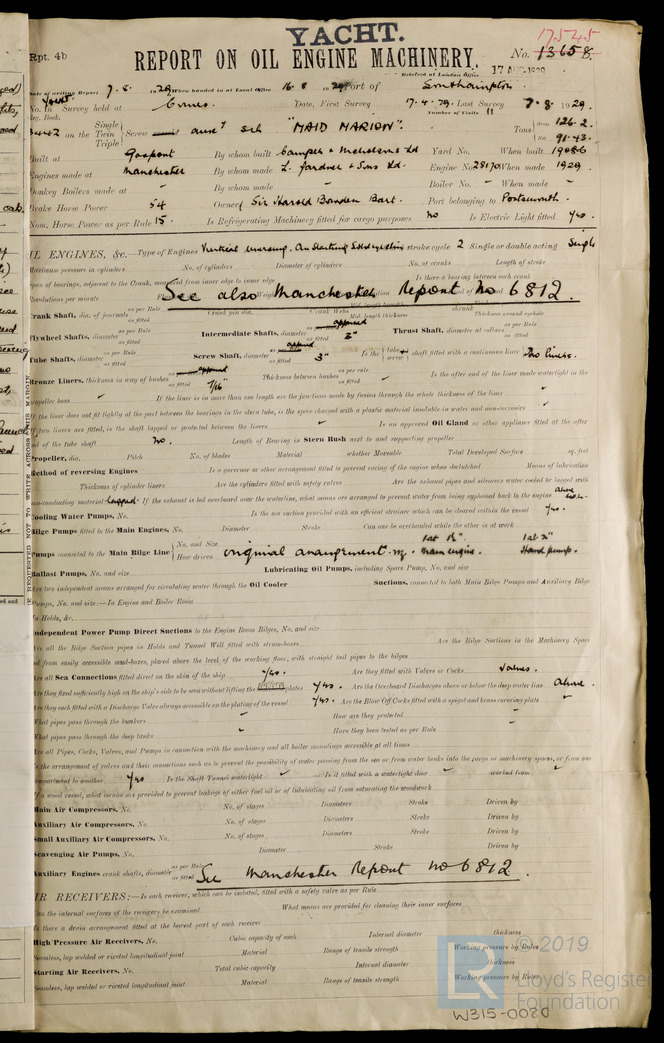 YACHT.
17545
Rpt. 4b
REPORT ON OIL ENGINE MACHINERY.
No. 13658.
Received at London Office
Date of writing Report 7.8. 1929 When handed in at Local Office 16.8 1929 Port of Southampton
No. in Survey held at Cowes Date, First Survey 17.4.29 Last Survey 7.8.1929.
Reg. Book. Number of Visits 11
on the Single Twin Triple Screw aux^y sch "MAID MARION". Tons Gross 126.2 Net 91.43
Built at Gosport By whom built Camper & Nicholsons Ld Yard No. When built
Engines made at Manchester By whom made L. Gardner & Sons Ld. Engine No. 28170 When made 1929
Donkey Boilers made at - By whom made - Boiler No. - When made -
Brake Horse Power 54 Owners Sir Harold Bowden Bart. Port belonging to Portsmouth.
Nom. Horse Power as per Rule 15. Is Refrigerating Machinery fitted for cargo purposes no Is Electric Light fitted yes.
OIL ENGINES, &c.—Type of Engines 2 or 4 stroke cycle 2 Single or double acting Single
Maximum pressure in cylinders No. of cylinders Diameter of cylinders No. of cranks Length of stroke
Span of bearings, adjacent to the Crank, measured from inner edge to inner edge Is there a bearing between each crank
Revolutions per minute
See also Manchester Report No 6812.
Crank Shaft, dia. of journals as per Rule as fitted Crank pin dia. Crank Webs Mid. length breadth Mid. length thickness shrunk Thickness around eyehole
Flywheel Shafts, diameter as per Rule as fitted Intermediate Shafts, diameter as per Rule approved as fitted 3" Thrust Shaft, diameter at collars as per Rule as fitted
Tube Shafts, diameter as per Rule as fitted Screw Shaft, diameter approved as fitted 3" Is the tube screw shaft fitted with a continuous liner No liners.
Bronze Liners, thickness in way of bushes as per Rule approved as fitted 7/16" Thickness between bushes as per rule as fitted Is the after end of the liner made watertight in the
propeller boss If the liner is in more than one length are the junctions made by fusion through the whole thickness of the liner
If the liner does not fit tightly at the part between the bearings in the stern tube, is the space charged with a plastic material insoluble in water and non-corrosive
If two liners are fitted, is the shaft lapped or protected between the liners Is an approved Oil Gland or other appliance fitted at the after
end of the tube shaft No. Length of Bearing in Stern Bush next to and supporting propeller
Propeller, dia. Pitch No. of blades Material whether Moveable Total Developed Surface sq. feet
Method of reversing Engines Is a governor or other arrangement fitted to prevent racing of the engine when declutched Means of lubrication
Thickness of cylinder liners Are the cylinders fitted with safety valves Are the exhaust pipes and silencers water cooled or lagged with
non-conducting material lagged. If the exhaust is led overboard near the waterline, what means are arranged to prevent water from being syphoned back to the engine
Cooling Water Pumps, No. Is the sea suction provided with an efficient strainer which can be cleared within the vessel yes.
Bilge Pumps fitted to the Main Engines, No. Diameter Stroke Can one be overhauled while the other is at work
Pumps connected to the Main Bilge Line No. and Size How driven original arrangement. main engine. Hand pump.
Ballast Pumps, No. and size Lubricating Oil Pumps, including Spare Pump, No. and size
Are two independent means arranged for circulating water through the Oil Cooler Suctions, connected to both Main Bilge Pumps and Auxiliary Bilge
Pumps, No. and size:—In Engine and Boiler Room
In Holds, &c.
Independent Power Pump Direct Suctions to the Engine Room Bilges, No. and size
Are all the Bilge Suction pipes in Holds and Tunnel Well fitted with strum-boxes Are the Bilge Suctions in the Machinery Space
led from easily accessible mud-boxes, placed above the level of the working floor, with straight tail pipes to the bilges
Are all Sea Connections fitted direct on the skin of the ship yes. Are they fitted with Valves or Cocks valves.
Are they fixed sufficiently high on the ship's side to be seen without lifting the platform plates yes. Are the Overboard Discharges above or below the deep water line above.
Are they each fitted with a Discharge Valve always accessible on the plating of the vessel yes. Are the Blow Off Cocks fitted with a spigot and brass covering plate
What pipes pass through the bunkers How are they protected
What pipes pass through the deep tanks Have they been tested as per Rule
Are all Pipes, Cocks, Valves, and Pumps in connection with the machinery and all boiler mountings accessible at all times
Is the arrangement of valves and their connections such as to prevent the possibility of water passing from the sea or from water tanks into the cargo or machinery spaces, or from one
compartment to another yes Is the Shaft Tunnel watertight Is it fitted with a watertight door worked from
If a wood vessel, what means are provided to prevent leakage of either fuel oil or of lubricating oil from saturating the woodwork
Main Air Compressors, No. No. of stages Diameters Stroke Driven by
Auxiliary Air Compressors, No. No. of stages Diameters Stroke Driven by
Small Auxiliary Air Compressors, No. No. of stages Diameters Stroke Driven by
Scavenging Air Pumps, No. Diameter Stroke Driven by
Auxiliary Engines crank shafts, diameter as per Rule as fitted See Manchester Report No 6812.
AIR RECEIVERS:—Is each receiver, which can be isolated, fitted with a safety valve as per Rule
Can the internal surfaces of the receivers be examined What means are provided for cleaning their inner surfaces
Is there a drain arrangement fitted at the lowest part of each receiver
High Pressure Air Receivers, No. Cubic capacity of each Internal diameter thickness
Seamless, lap welded or riveted longitudinal joint Material Range of tensile strength Working pressure by Rules
Starting Air Receivers, No. Total cubic capacity Internal diameter thickness
Seamless, lap welded or riveted longitudinal joint Material Range of tensile strength Working pressure by Rules
© 2019
Lloyd's Register
Foundation
W315-0080